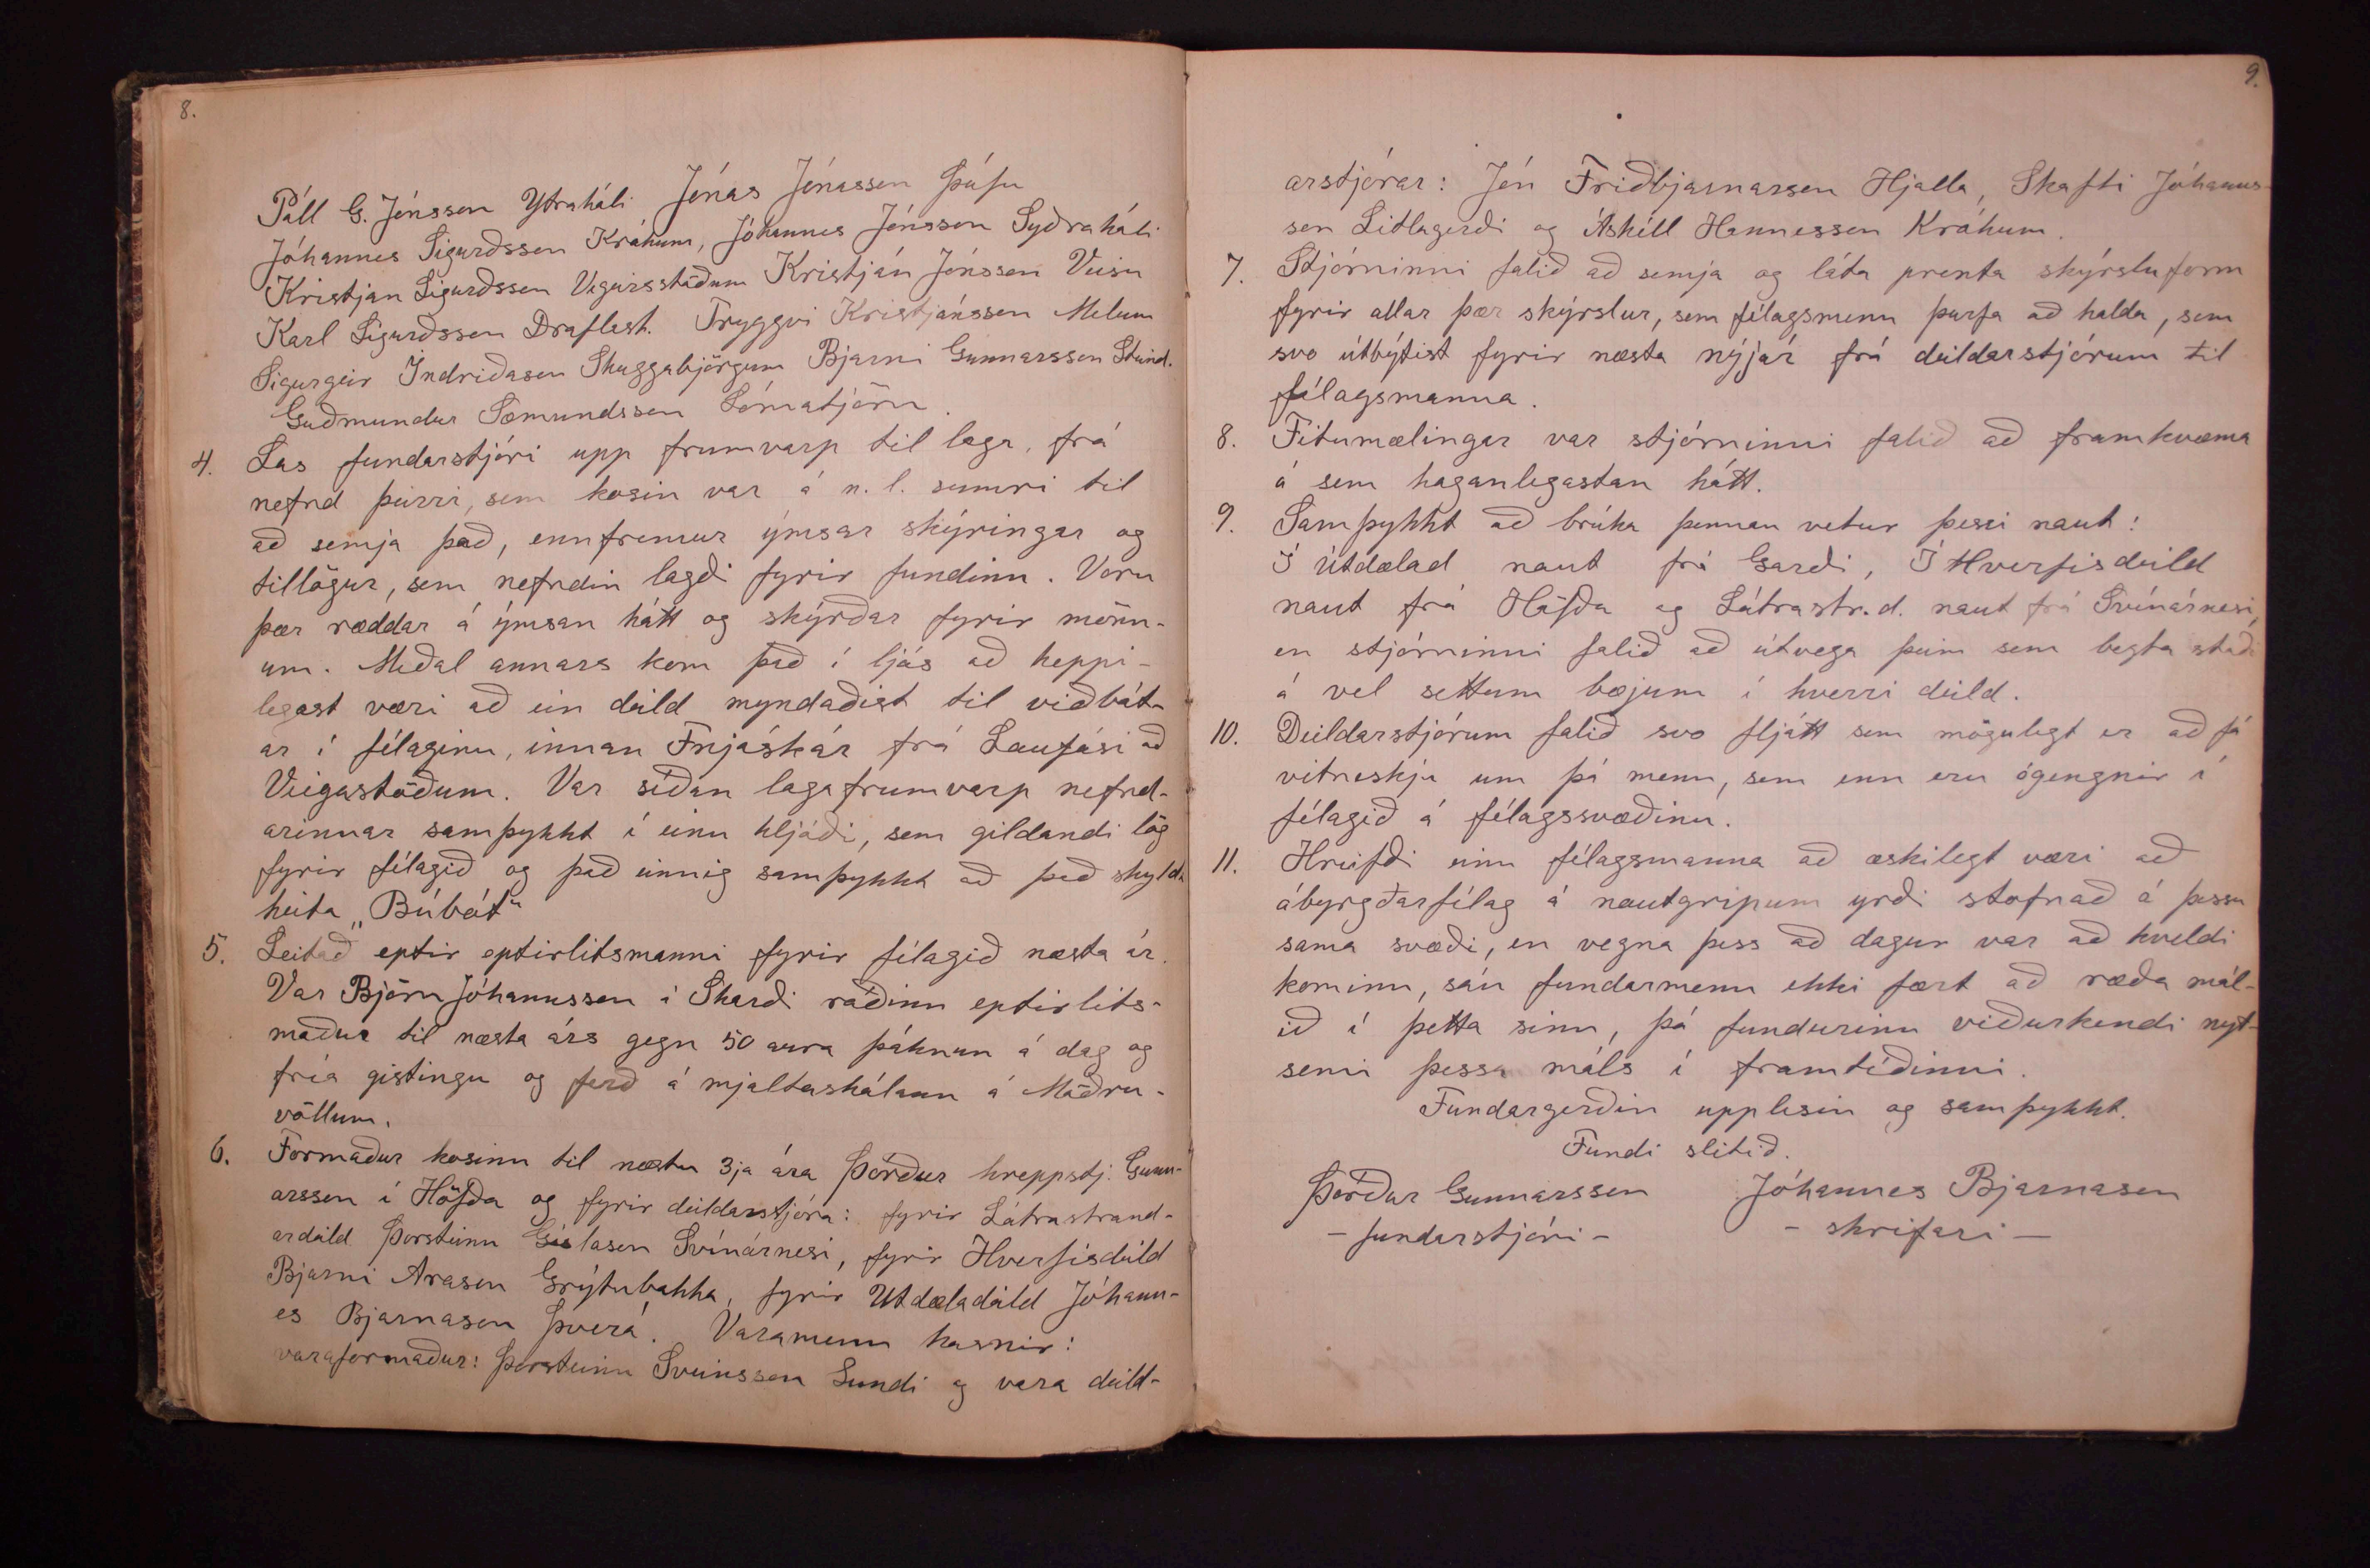 8.
Páll G. Jónsson Ytrahóli Jónas Jónasson Þúfu
Jóhannes Sigurðsson Krókum, Jóhannes Jónsson Syðrahóli
Kristján Sigurðsson Vegeirsstöðum Kristján Jónsson Veisu
Karl Sigurðsson Draflast. Tryggvi Kristjánsson Melum
Sigurgeir Indriðason Skuggabjörgum Bjarni Gunnarsson Steind.
Guðmundur Sæmundsson Lómatjörn.
4. Las fundarstjóri upp frumvarp til laga, frá
nefnd þeirri, sem kosin var á n. l. sumri til
að semja það, ennfremur ýmsar skýringar og
tillögur, sem nefndin lagði fyrir fundinn. Voru
þær ræddar á ýmsan hátt og skýrðar fyrir mönn-
um. Meðal annars kom það í ljós að heppi-
legast væri að ein deild myndaðist til viðbót-
ar í félaginu, innan Fnjóskár frá Laufási að
Veigastöðum. Var síðan lagafrumvarp nefnd-
arinnar samþykkt í einu hljóði, sem gildandi lög
fyrir félagið og það einnig samþykkt að það skyldi
heita „Búbót“
5. Leitað eptir eptirlitsmanni fyrir félagið næsta ár.
Var Björn Jóhannsson í Skarði ráðinn eptirlits-
maður til næsta árs gegn 50 aura þóknun á dag og
fría gistingu og ferð á mjaltaskólann á Möðru-
völlum.
6. Formaður kosinn til næstu 3ja ára Þórður hreppstj. Gunn-
arsson í Höfða og fyrir deildarstjóra: fyrir Látrastrand-
ardeild Þorsteinn Gíslason Svínárnesi, fyrir Hverfisdeild
Bjarni Arason Grýtubakka, fyrir Útdæladeild Jóhann-
es Bjarnason Þverá. Varamenn kosnir:
varaformaður: Þorsteinn Sveinsson Lundi og vara deild-
9.
arstjórar: Jón Friðbjarnarson Hjalla, Skafti Jóhanns-
son Litlagerði og Áskell Hannesson Krókum.
7. Stjórninni falið að semja og láta prenta skýrsluform
fyrir allar þær skýrslur, sem félagsmenn þurfa að halda, sem
svo útbýtist fyrir næsta nýjár frá deildarstjórum til
félagsmanna.
8. Fitumælingar var stjórninni falið að framkvæma
á sem haganlegastan hátt.
9. Samþykkt að brúka þennan vetur þessi naut:
Í Útdælad naut frá Garði, Í Hverfisdeild
naut frá Höfða og Látrastr.d. naut frá Svínárnesi,
en stjórninni falið að útvega þeim sem bezta staði
á vel settum bæjum í hverri deild.
10. Deildarstjórum falið svo fljótt sem mögulegt er að fá
vitneskju um þá menn, sem enn eru ógengnir í
félagið á félagssvæðinu.
11. Hreifði einn félagsmanna að æskilegt væri að
ábyrgðarfélag á nautgripum yrði stofnað á þessu
sama svæði, en vegna þess að dagur var að kveldi
kominn, sáu fundarmenn ekki fært að ræða mál-
ið í þetta sinn, þó fundurinn viðurkendi nyt-
semi þessa máls í framtíðinni.
Fundargerðin upplesin og samþykkt.
Fundi slitið.
Þórður Gunnarsson Jóhannes Bjarnason
- fundarstjóri - - skrifari -